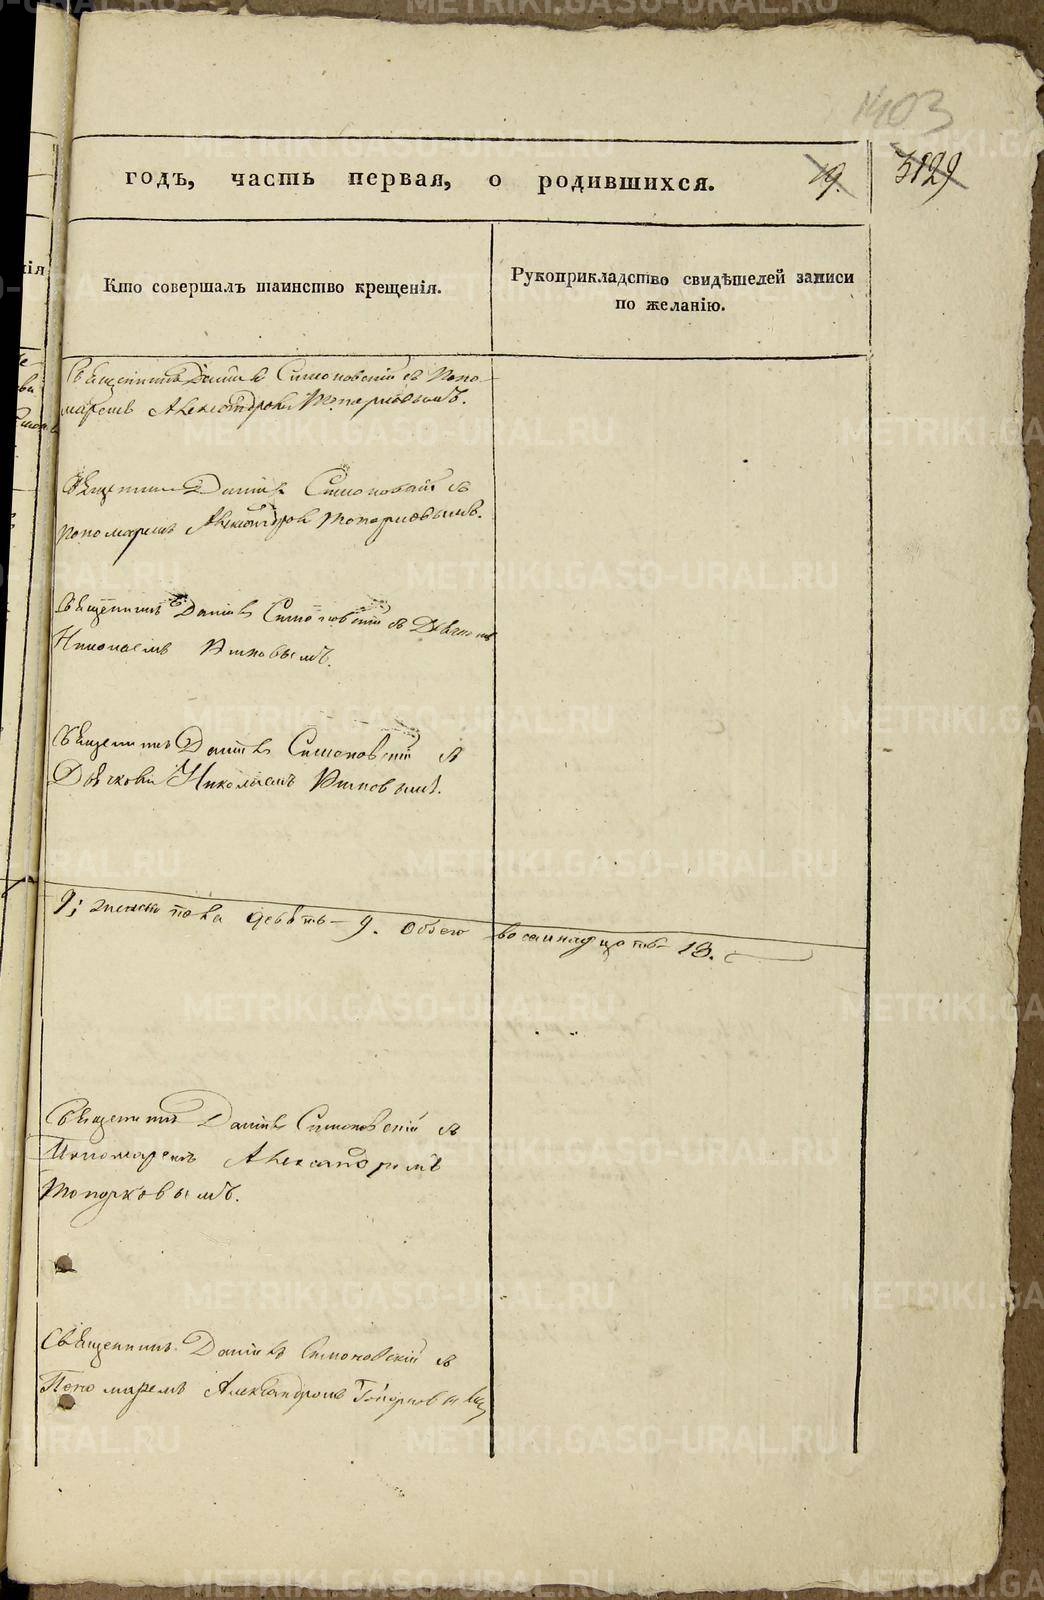 1403
годъ, часть первая, о родившихся.
19.
3129
Кто совершалъ таинство крещенія.
Рукоприкладство свидѣтелей записи
по желанію.
Священникъ Даніилъ Симоновскій съ Поно-
маремъ Александромъ Топорковымъ.
Священникъ Даніилъ Симоновскій съ
пономаремъ Александромъ Топорковымъ.
Священникъ Даніилъ Симоновскій съ Дьячкомъ
Николаемъ
Священникъ Даніилъ Симоновскій съ
Дьячкомъ Николаемъ
9; женска пола девять - 9. обоего восемнадцать - 18.
Священникъ Даніилъ Симоновскій съ
Пономаремъ Александромъ
Топорковымъ.
Священникъ Даніилъ Симоновскій съ
Пономаремъ Александромъ Топорковымъ
METRIKI.GASO-URAL.RU